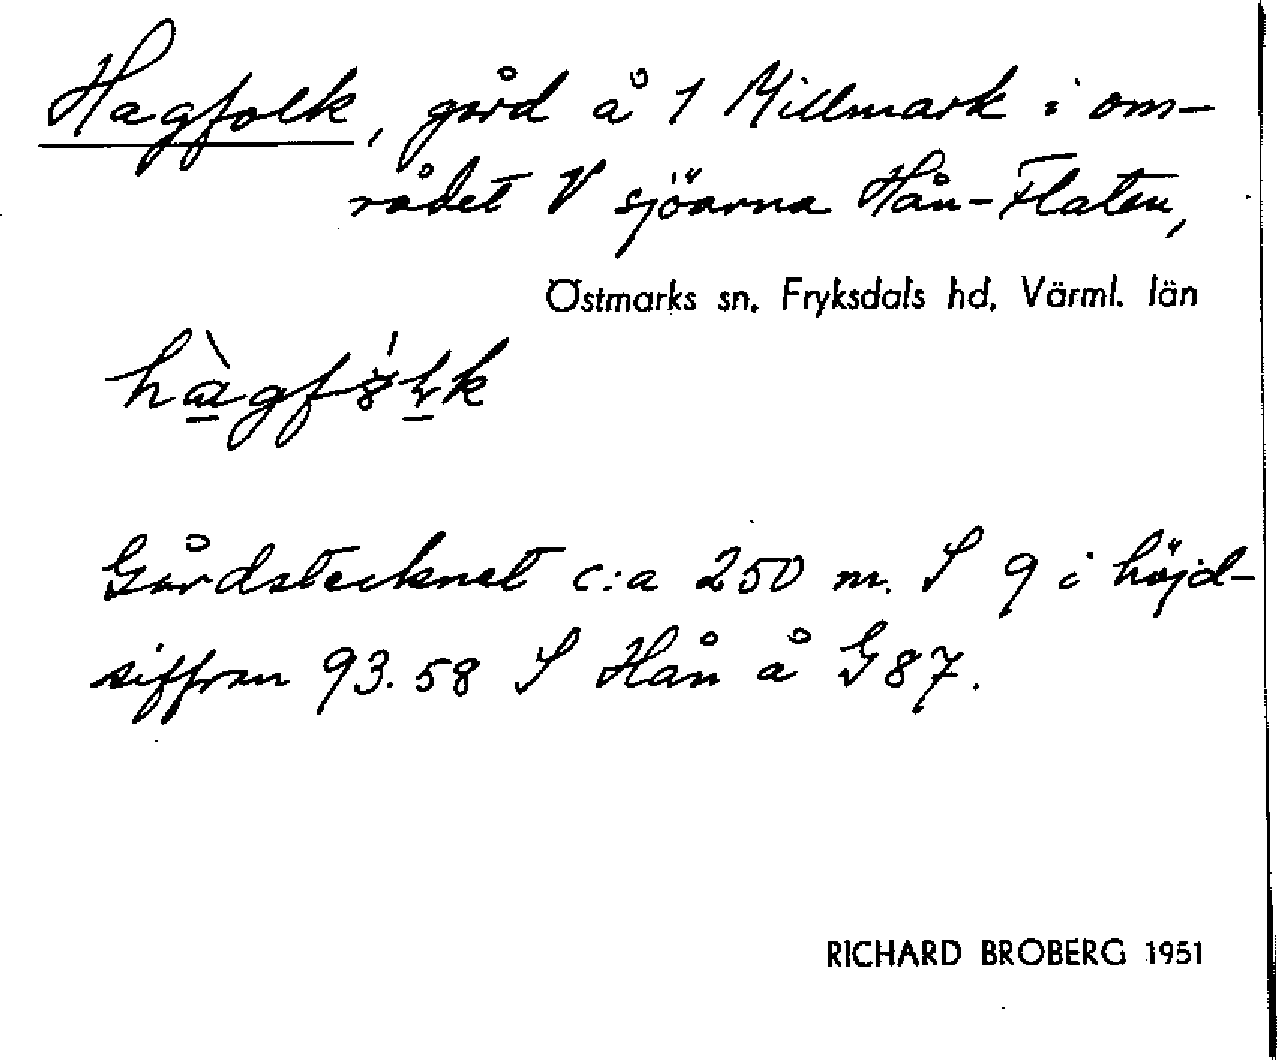 Hagfolk, gård å 1 Millmark i om-
rådet V sjöarna Hån-Flaten,
Östmarks sn. Fryksdals hd. Värml. län
Gårdstecknet c:a 250 m. S 9 i höjd-
siffran 93.58 S Hån å G 87.
RICHARD BROBERG 1951